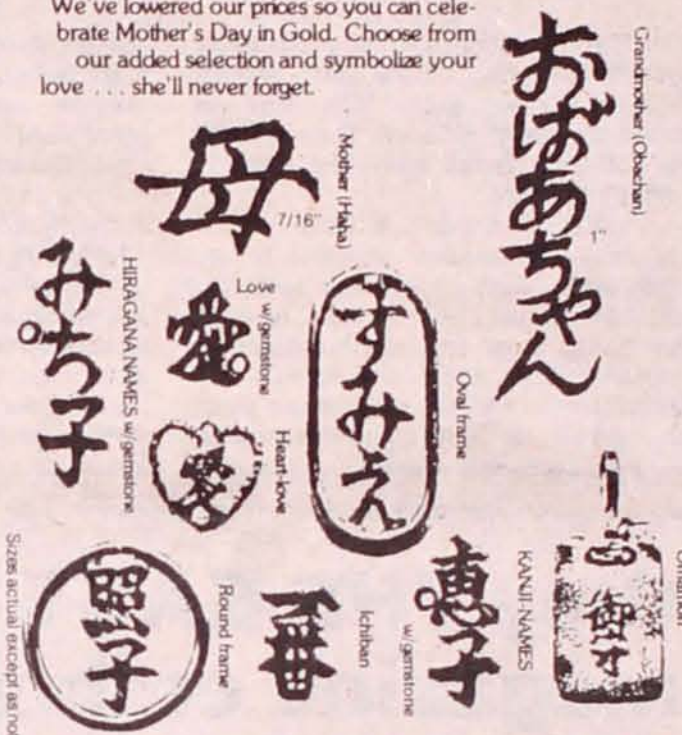 We've lowered our prices so you can cele-
brate Mother's Day in Gold. Choose from
our added selection and symbolize your
love . . . she'll never forget.
おばあちゃん
Grandmother (Obachan)
1"
母
Mother (Haha)
7/16"
みち子
HIRAGANA NAMES w/gemstone
愛
Love
w/gemstone
愛
Heart-love
すみえ
Oval frame
照子
Round frame
一番
Ichiban
恵子
KANJI-NAMES
w/gemstone
御守
Sizes actual except as